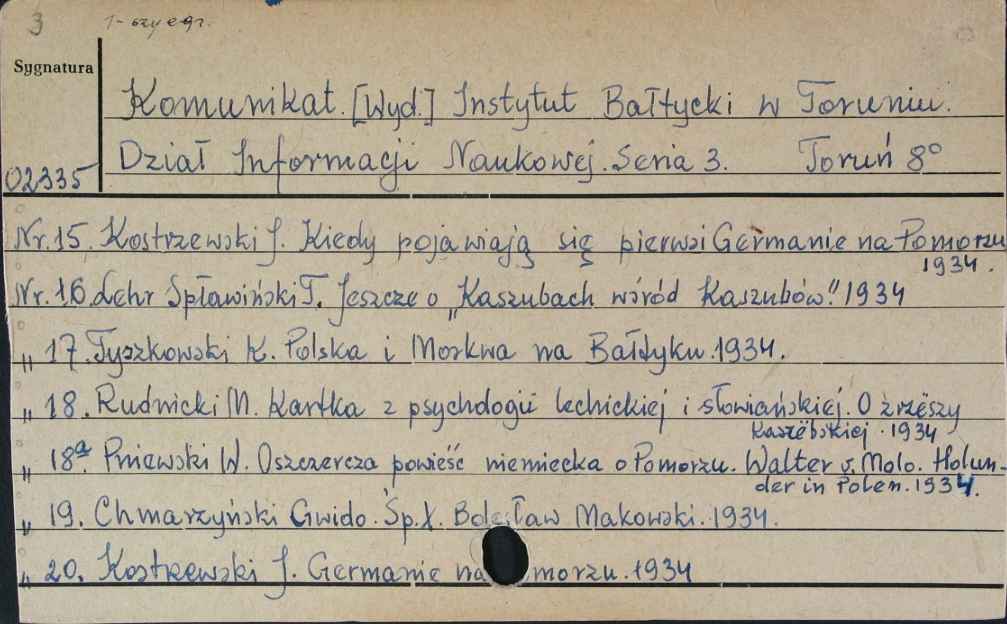 3 1-szy egz.
Sygnatura
Komunikat. [Wyd.] Instytut Bałtycki w Toruniu.
Dział Informacji Naukowej. Seria 3. Toruń 8°
02335
Nr. 15. Kostrzewski J. Kiedy pojawiają się pierwsi Germanie na Pomorzu
1934.
Nr. 16. Lehr Spławiński T. Jeszcze o „Kaszubach wśród Kaszubów." 1934
„ 17. Tyszkowski K. Polska i Moskwa na Bałtyku. 1934.
„ 18. Rudnicki M. Kartka z psychologii lechickiej i słowiańskiej. O zrzëszy
Kaszëbskiej. 1934
„ 18a Pniewski W. Oszczercza powieść niemiecka o Pomorzu. Walter v. Molo. Holun-
der in Polen. 1934.
„ 19. Chmarzyński Gwido. Śp. X. Bolesław Makowski. 1934.
„ 20. Kostrzewski J. Germanie na morzu. 1934